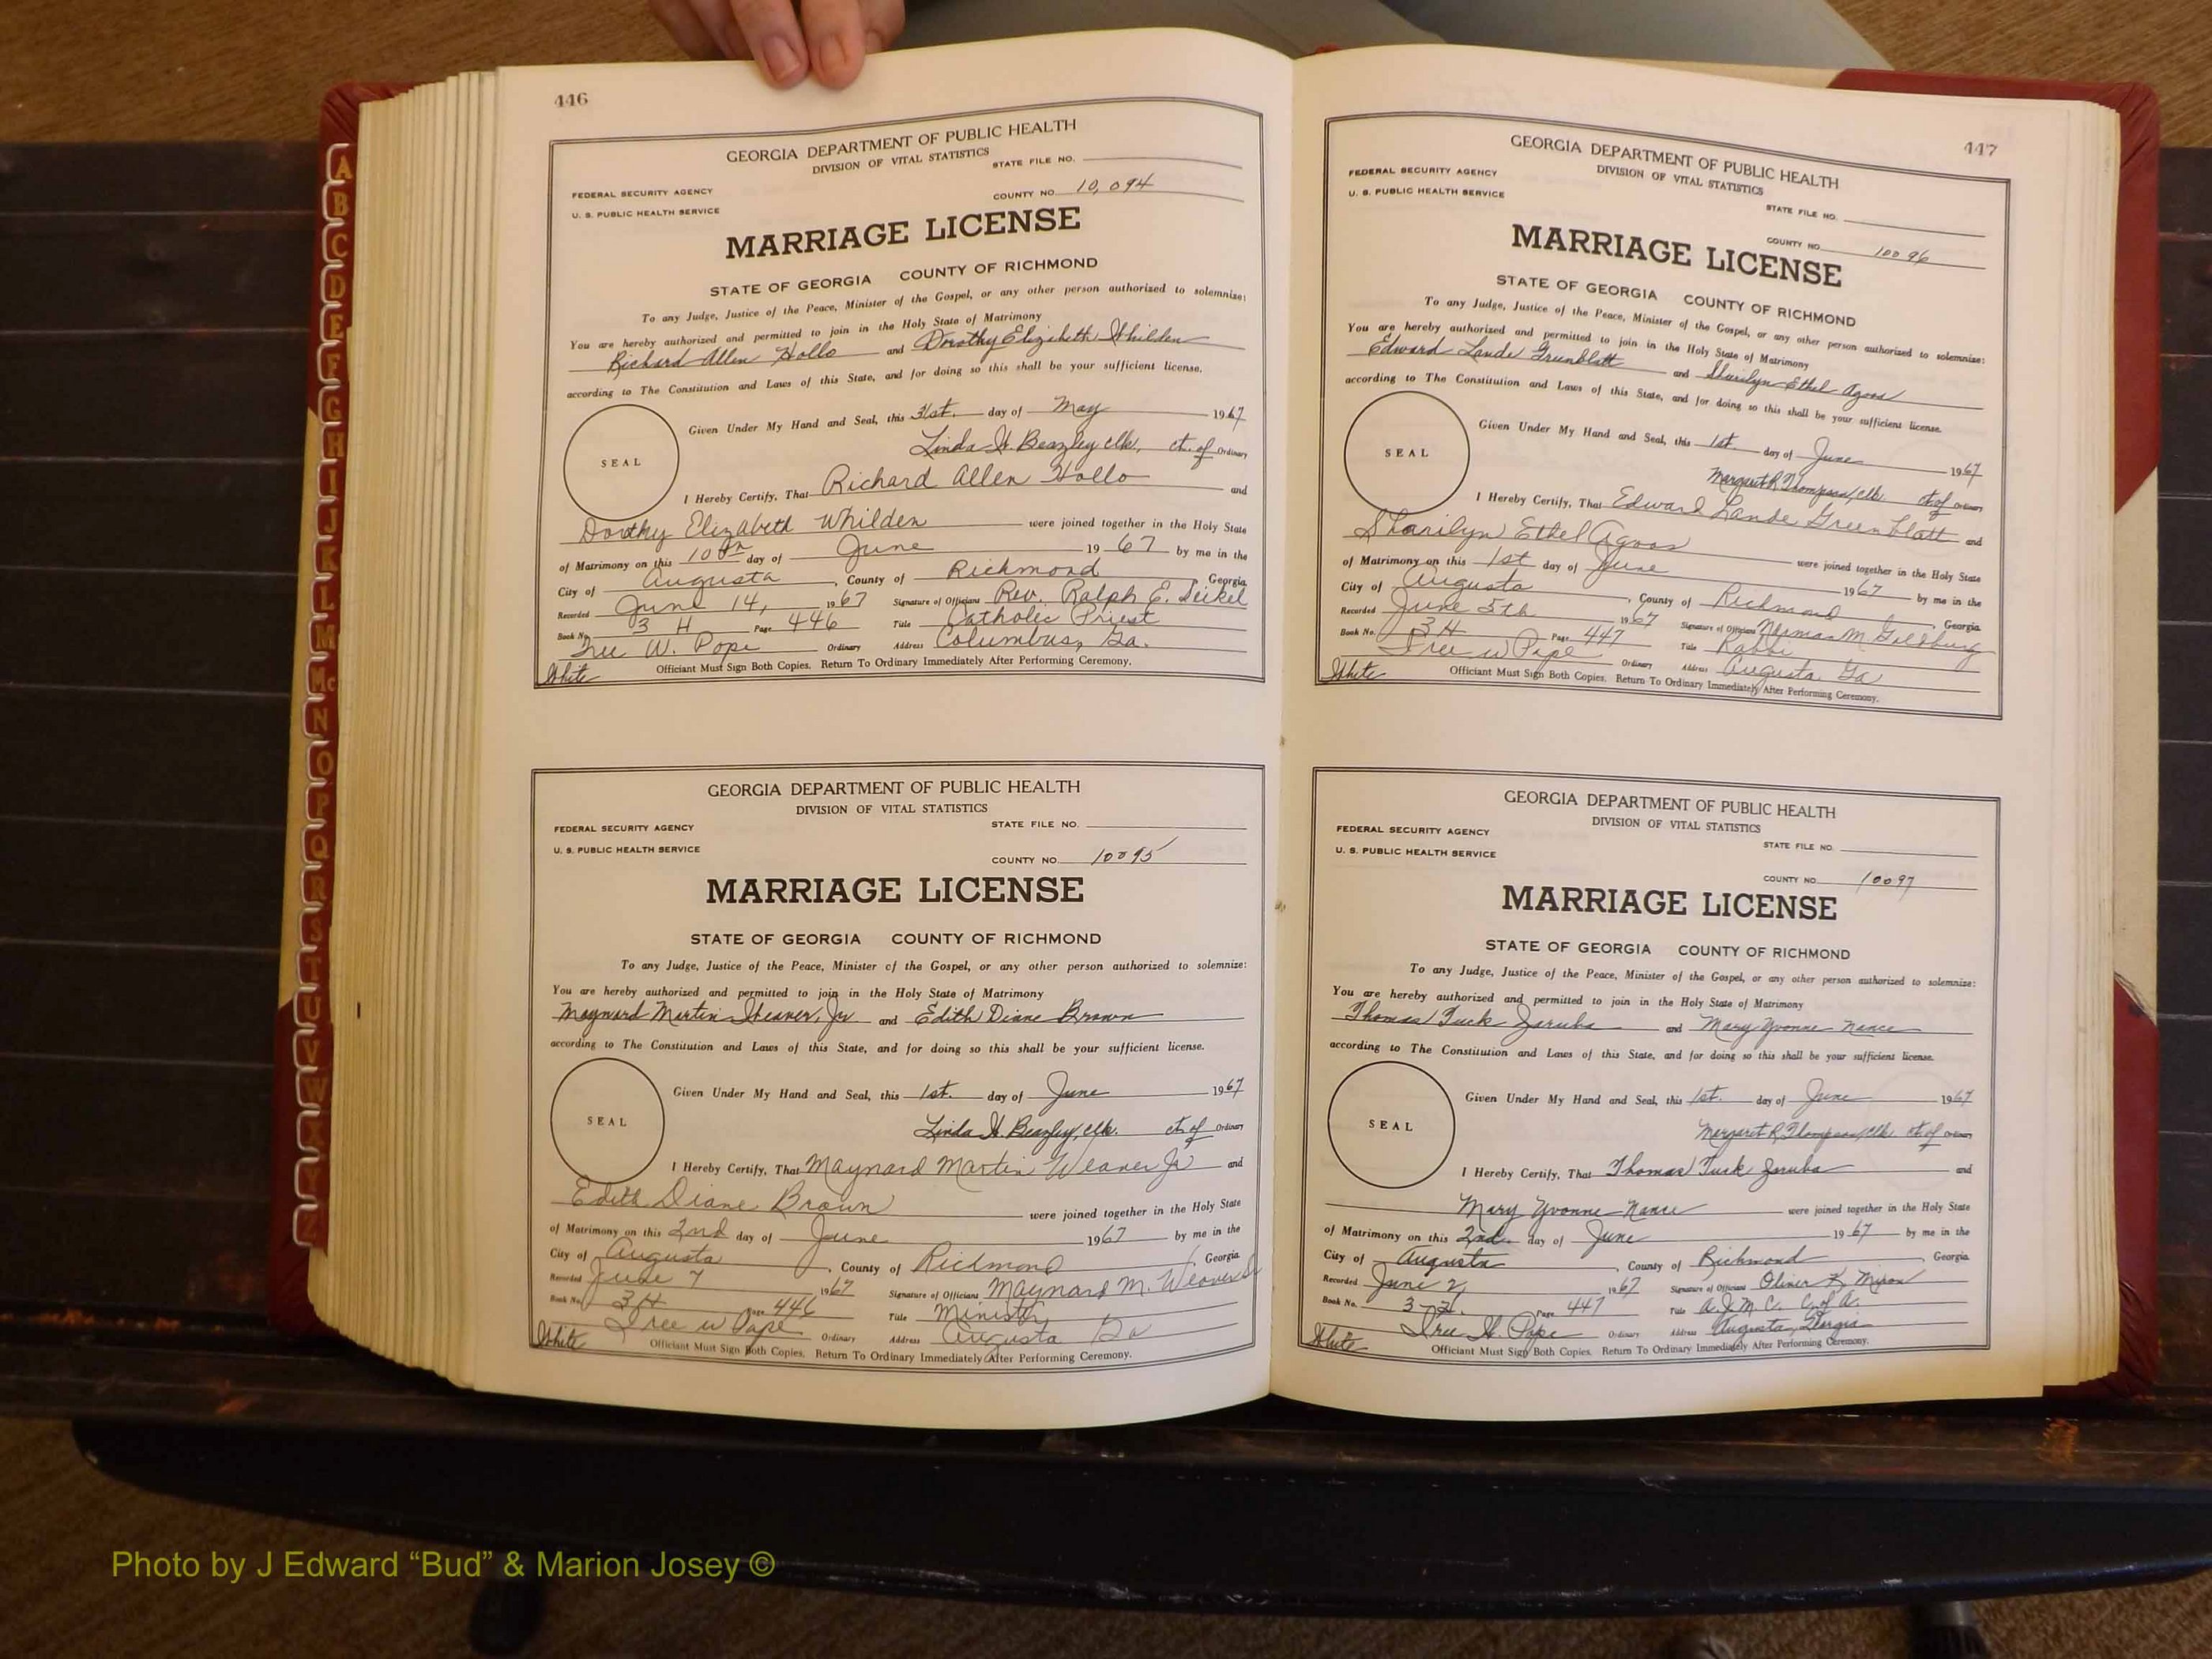 446
GEORGIA DEPARTMENT OF PUBLIC HEALTH
DIVISION OF VITAL STATISTICS
STATE FILE NO.
FEDERAL SECURITY AGENCY
U. S. PUBLIC HEALTH SERVICE
COUNTY NO. 10,094
MARRIAGE LICENSE
STATE OF GEORGIA COUNTY OF RICHMOND
To any Judge, Justice of the Peace, Minister of the Gospel, or any other person authorized to solemnize:
You are hereby authorized and permitted to join in the Holy State of Matrimony
Richard Allen Hollo and Dorothy Elizabeth Whilden
according to The Constitution and Laws of this State, and for doing so this shall be your sufficient license.
Given Under My Hand and Seal, this 31st. day of May 1967
Linda H. Beazley, Clk. Ct. of Ordinary
SEAL
I Hereby Certify, That Richard Allen Hollo and
Dorothy Elizabeth Whilden were joined together in the Holy State
of Matrimony on this 10th day of June 1967 by me in the
City of Augusta, County of Richmond, Georgia
Recorded June 14, 1967 Signature of Officiant Rev. Ralph E. Seikel
Book No. 3 H Page 446 Title Catholic Priest
W. Pope Ordinary Address Columbus, Ga.
White Officiant Must Sign Both Copies. Return To Ordinary Immediately After Performing Ceremony.
GEORGIA DEPARTMENT OF PUBLIC HEALTH
DIVISION OF VITAL STATISTICS
FEDERAL SECURITY AGENCY STATE FILE NO.
U. S. PUBLIC HEALTH SERVICE
COUNTY NO. 10095
MARRIAGE LICENSE
STATE OF GEORGIA COUNTY OF RICHMOND
To any Judge, Justice of the Peace, Minister of the Gospel, or any other person authorized to solemnize:
You are hereby authorized and permitted to join in the Holy State of Matrimony
Maynard Martin Weaver, Jr and Edith Diane Brown
according to The Constitution and Laws of this State, and for doing so this shall be your sufficient license.
Given Under My Hand and Seal, this 1st. day of June 1967
Linda H. Beazley, Clk. Ct. of Ordinary
SEAL
I Hereby Certify, That Maynard Martin Weaver Jr and
Edith Diane Brown were joined together in the Holy State
of Matrimony on this 2nd day of June 1967 by me in the
City of Augusta, County of Richmond, Georgia
Recorded June 7 1967 Signature of Officiant Maynard M. Weaver Sr
Book No. 3H Page 446 Title Minister
W Pope Ordinary Address Augusta Ga
White Officiant Must Sign Both Copies. Return To Ordinary Immediately After Performing Ceremony.
447
GEORGIA DEPARTMENT OF PUBLIC HEALTH
DIVISION OF VITAL STATISTICS
FEDERAL SECURITY AGENCY
U. S. PUBLIC HEALTH SERVICE
STATE FILE NO.
COUNTY NO. 10096
MARRIAGE LICENSE
STATE OF GEORGIA COUNTY OF RICHMOND
To any Judge, Justice of the Peace, Minister of the Gospel, or any other person authorized to solemnize:
You are hereby authorized and permitted to join in the Holy State of Matrimony
Edward Lande Greenblatt and Sharilyn Ethel Agoos
according to The Constitution and Laws of this State, and for doing so this shall be your sufficient license.
Given Under My Hand and Seal, this 1st. day of June 1967
Margaret R. Thompson, Clk. Ct. of Ordinary
SEAL
I Hereby Certify, That Edward Lande Greenblatt and
Sharilyn Ethel Agoos were joined together in the Holy State
of Matrimony on this 1st day of June 1967 by me in the
City of Augusta, County of Richmond, Georgia
Recorded June 5th 1967 Signature of Officiant Norman M Goldburg
Book No. 3H Page 447 Title Rabbi
W Pope Ordinary Address Augusta Ga
White Officiant Must Sign Both Copies. Return To Ordinary Immediately After Performing Ceremony.
GEORGIA DEPARTMENT OF PUBLIC HEALTH
DIVISION OF VITAL STATISTICS
FEDERAL SECURITY AGENCY
U. S. PUBLIC HEALTH SERVICE
STATE FILE NO.
COUNTY NO. 10097
MARRIAGE LICENSE
STATE OF GEORGIA COUNTY OF RICHMOND
To any Judge, Justice of the Peace, Minister of the Gospel, or any other person authorized to solemnize:
You are hereby authorized and permitted to join in the Holy State of Matrimony
Thomas Tuck Zaruba and Mary Yvonne Nance
according to The Constitution and Laws of this State, and for doing so this shall be your sufficient license.
Given Under My Hand and Seal, this 1st. day of June 1967
Margaret R. Thompson, Clk. Ct. of Ordinary
SEAL
I Hereby Certify, That Thomas Tuck Zaruba and
Mary Yvonne Nance were joined together in the Holy State
of Matrimony on this 2nd. day of June 1967 by me in the
City of Augusta, County of Richmond, Georgia
Recorded June 2, 1967 Signature of Officiant Oliver K. Mixon
Book No. 3-H. Page 447 Title A.J.M.C. C. of A.
Pope Ordinary Address Augusta, Georgia
White Officiant Must Sign Both Copies. Return To Ordinary Immediately After Performing Ceremony.
A
B
C
D
E
F
G
H
I
J
K
L
M
Mc
N
O
P
Q
R
S
T
U
V
W
Z
Photo by J Edward “Bud” & Marion Josey ©